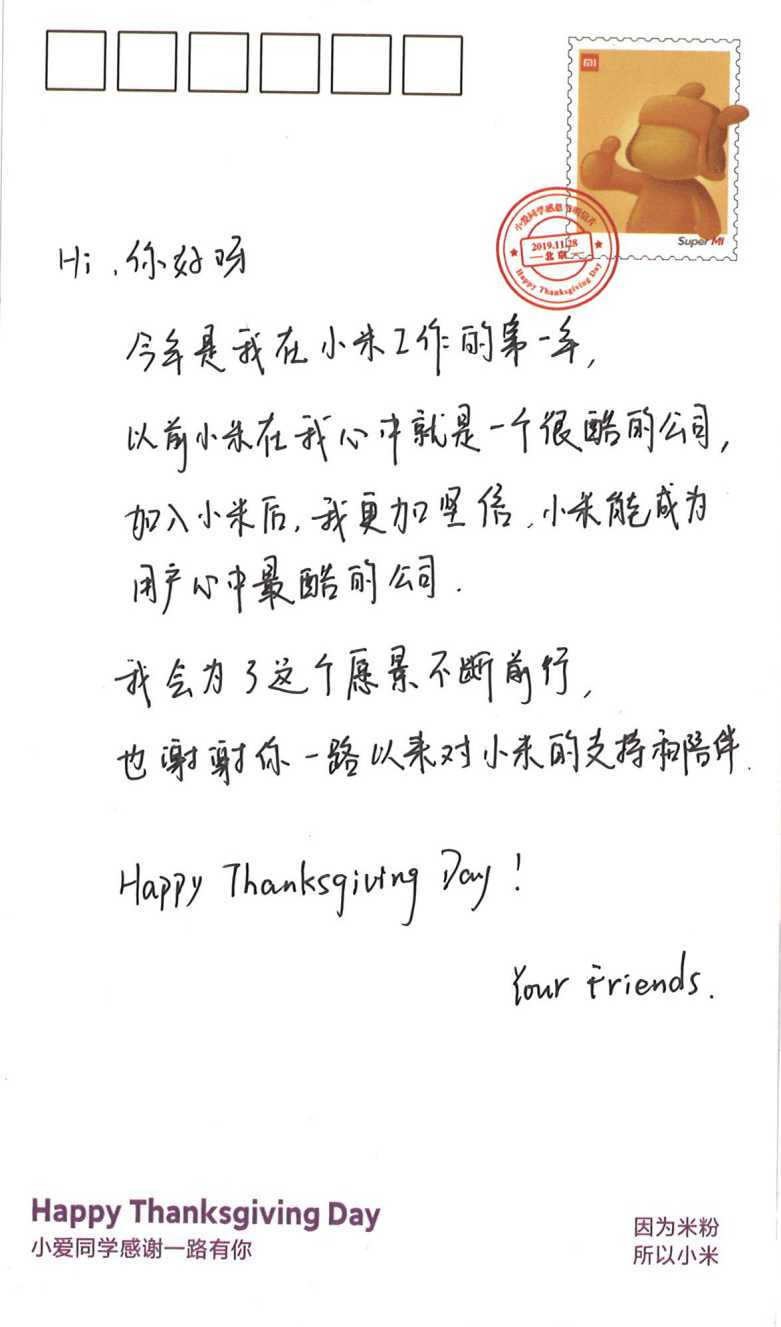 MI
Super MI
小爱同学感恩节明信片
2019.11.28
北京
Happy Thanksgiving Day
Hi,你好呀
今年是我在小米工作的第一年,
以前小米在我心中就是一个很酷的公司,
加入小米后,我更加坚信,小米能成为
用户心中最酷的公司.
我会为了这个愿景不断前行,
也谢谢你一路以来对小米的支持和陪伴.
Happy Thanksgiving Day!
Your Friends.
Happy Thanksgiving Day
小爱同学感谢一路有你
因为米粉
所以小米